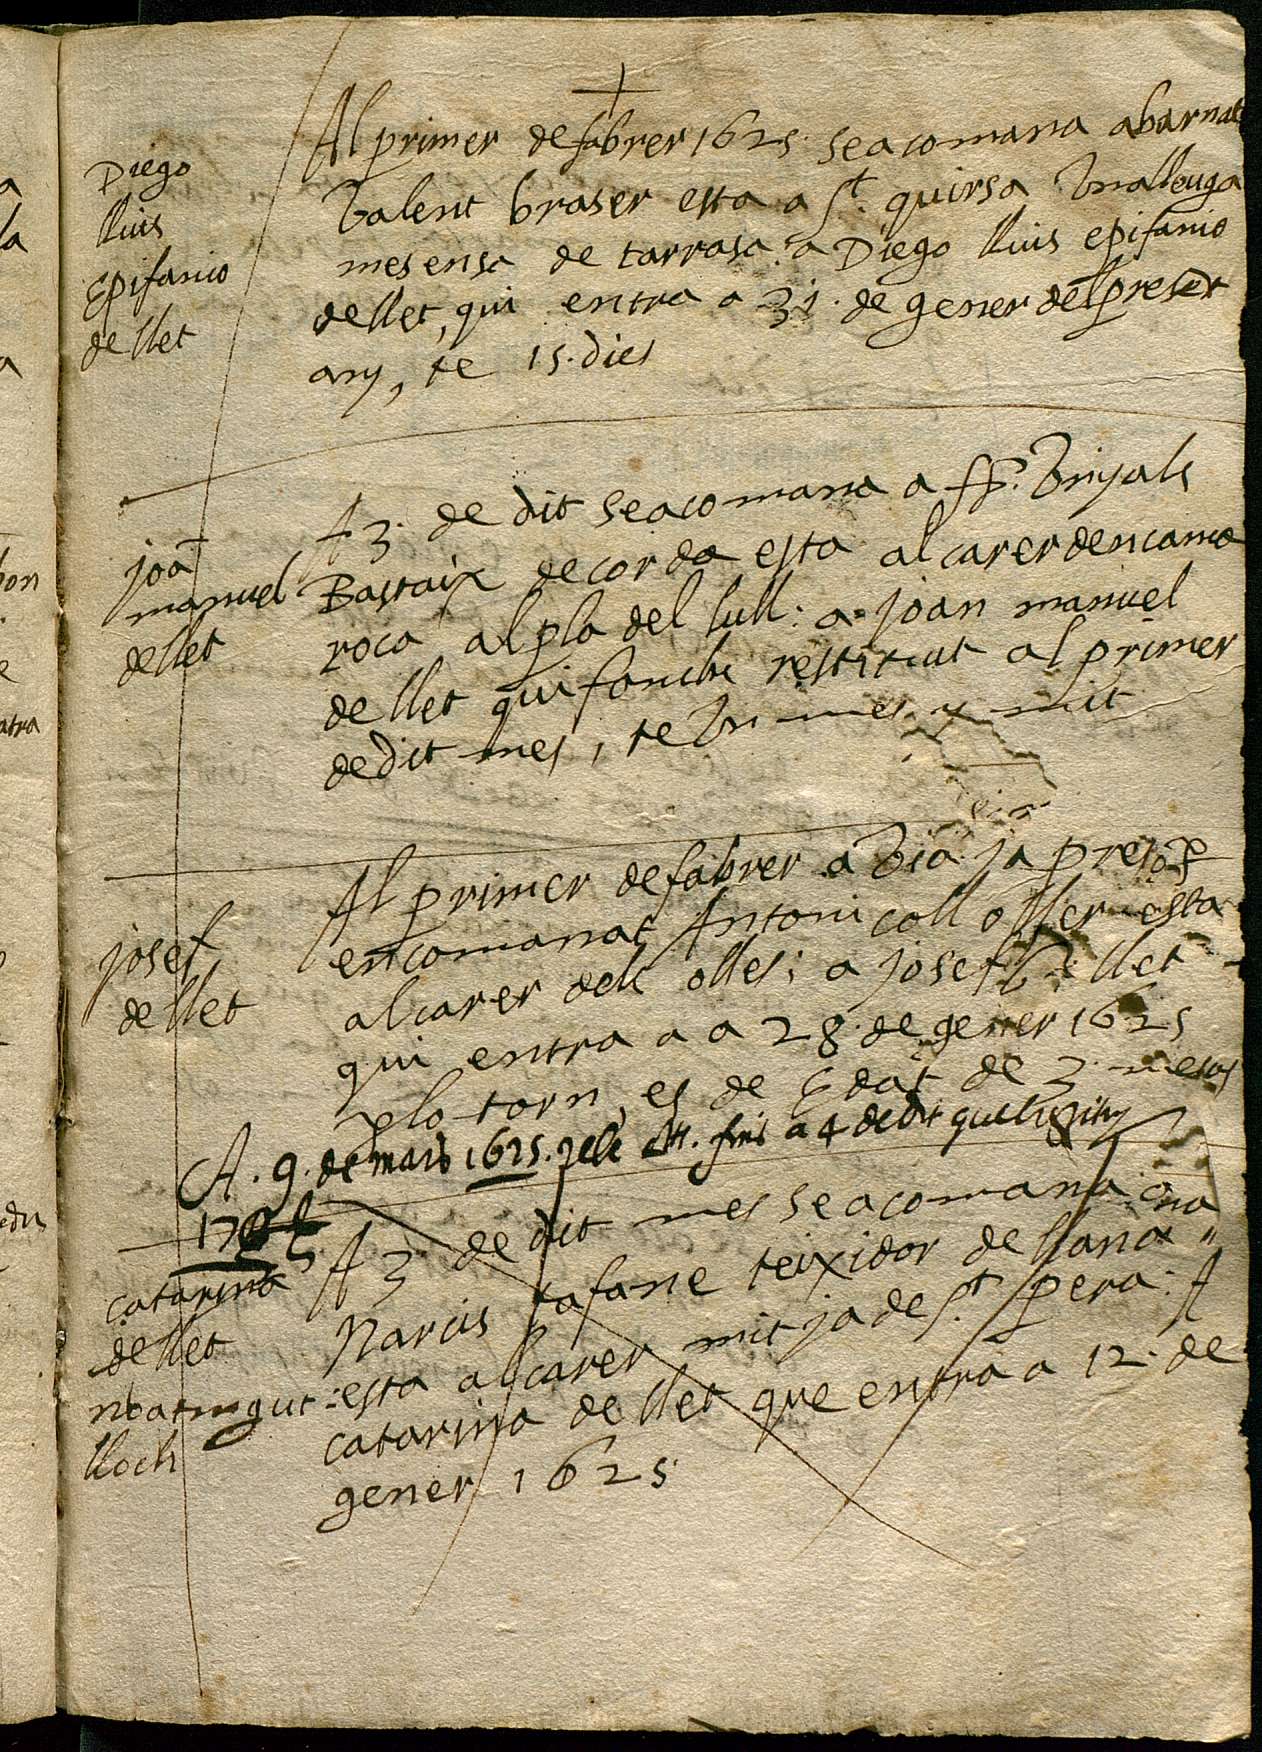 Diego
lluis
Epifanio
de llet
Al primer de fabrer 1625. se acomana a barnat
Valent braser esta a St. quirsa Vna lleuga
mes ensa de tarrasa: a Diego lluis epifanio
de llet, qui entra a 31. de gener del present
any, te 15. dies
joã
manuel
de llet
A 3. de dit se acomana a Vinyals
Bastaix de corda esta al carer den cama
roca al pla del lull: a joan manuel
de llet qui restituit al primer
de dit mes, te Vn mes y mit
josef
de llet
Al primer de fabrer a
encomanat Antoni coll oller esta
al carer dels olles: a josef llet
qui entra a a 28. de gener 1625
plo torn, es de Edat de 3. mesos
A. 9. de mars 1625. fins a 4 de dit
catarina
de llet
no a tingut
lloch
A 3. de dit mes se acomana a na
Narcis tafane teixidor de llana
esta al carer mitja de St. pera: A
catarina de llet que entra a 12. de
gener 1625.